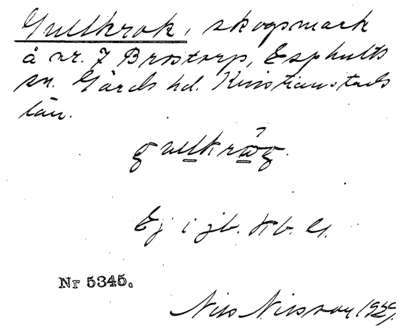 Gullkrok, skogsmark
å nr. 7 Brostorp, Esphults
sn. Gärds hd. Kristianstads
län.
gullkrɷ̀g.
Ej i jb. Kb. G.
Nr 5345.
Nils Nilsson 1929.